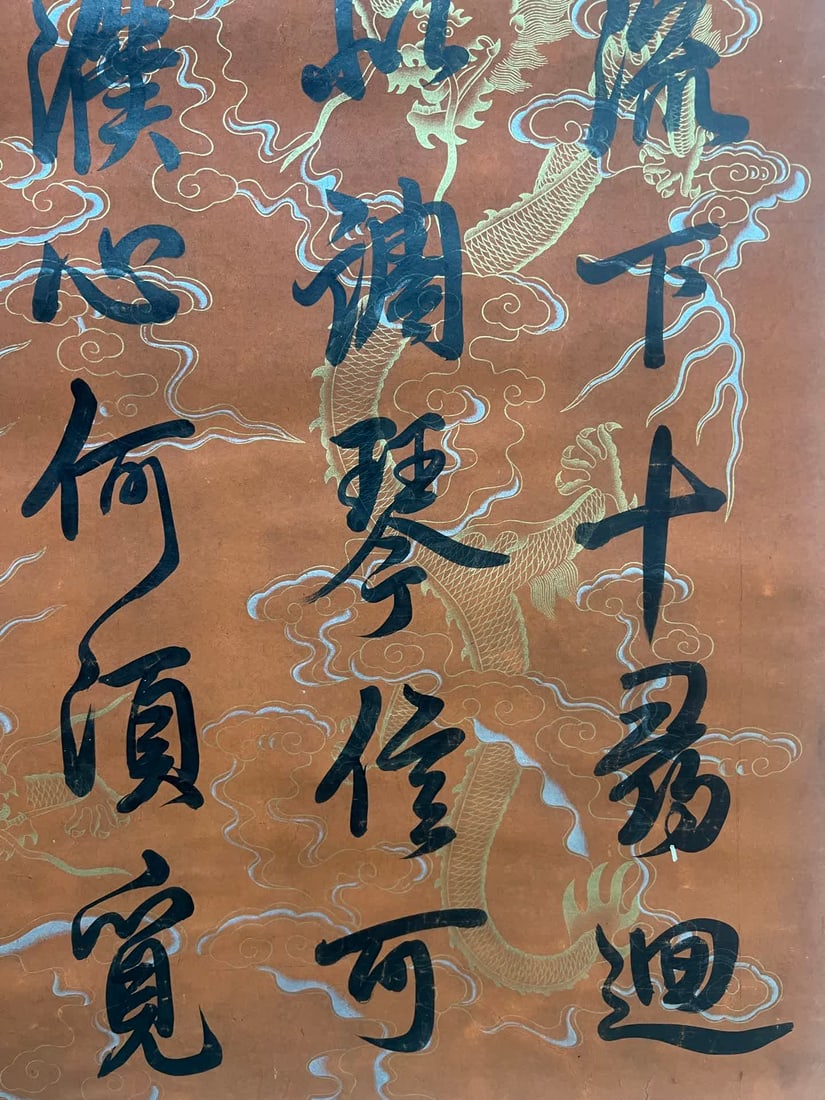 流下十尋迴
調琴信可
濮心何須覓